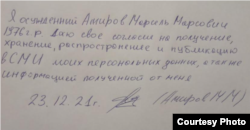 Я осужденный Амиров Марсель Марсович
1976 г.р. Даю свое согласие на получение,
хранение, распространение и публикацию
в СМИ моих персональных данных, а также
информацией полученной от меня
23.12.21г. (Амиров М.М)
Courtesy Photo